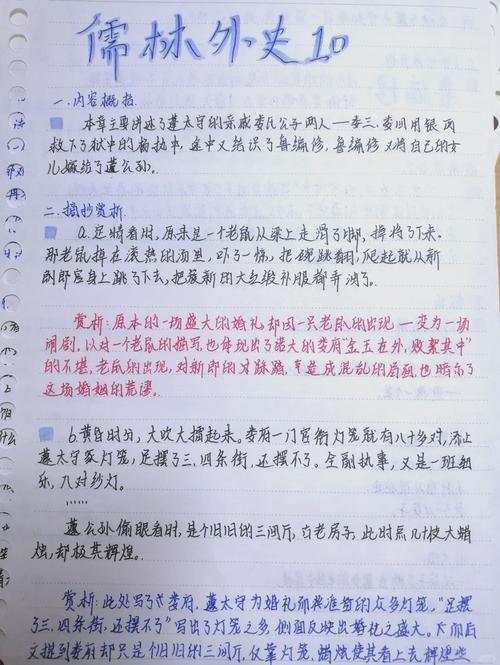 儒林外史10
一.内容概括.
本章主要讲述了蘧太守的亲戚娄氏公子两人一娄三、娄四用银两
救下了狱中的杨执中,途中又结识了鲁编修,鲁编修又将自己的女
儿嫁给了蘧公孙。
二.摘抄赏析.
a.定睛看时,原来是一个老鼠从梁上走滑了脚,掉将下来.
那老鼠掉在滚热的汤里,吓了一惊,把碗跳翻,爬起就从新
郎官身上跳了下去,把簇新的大红缎补服都弄油了。
赏析:原本的一场盛大的婚礼,却因一只老鼠的出现一变为一场
闹剧,以对一个老鼠的描写,也体现出了强大的娄府"金玉在外,败絮其中"
的不堪,老鼠的出现,对新郎的对造成混乱的局面,也暗示了
这场婚姻的荒谬。
b.黄昏时分,大吹大擂起来。娄府一门官衔灯笼就有八十多对,添上
蘧太守家灯笼,足摆了三、四条街,还摆不了。全副执事,又是一班细
乐,八对纱灯。
......
蘧公孙偷眼看时,是个旧旧的三间厅,古老房子,此时点几十枝大蜡
烛,却极其辉煌。
赏析:此处写了娄府,蘧太守为婚礼而准备的众多灯笼,"足摆
了三、四条街,还摆不了"写出了灯笼之多,侧面反映出婚礼之盛大。而后
文提到娄府却只是个旧旧的三间厅,仅靠灯笼、蜡烛使其看上去辉煌些